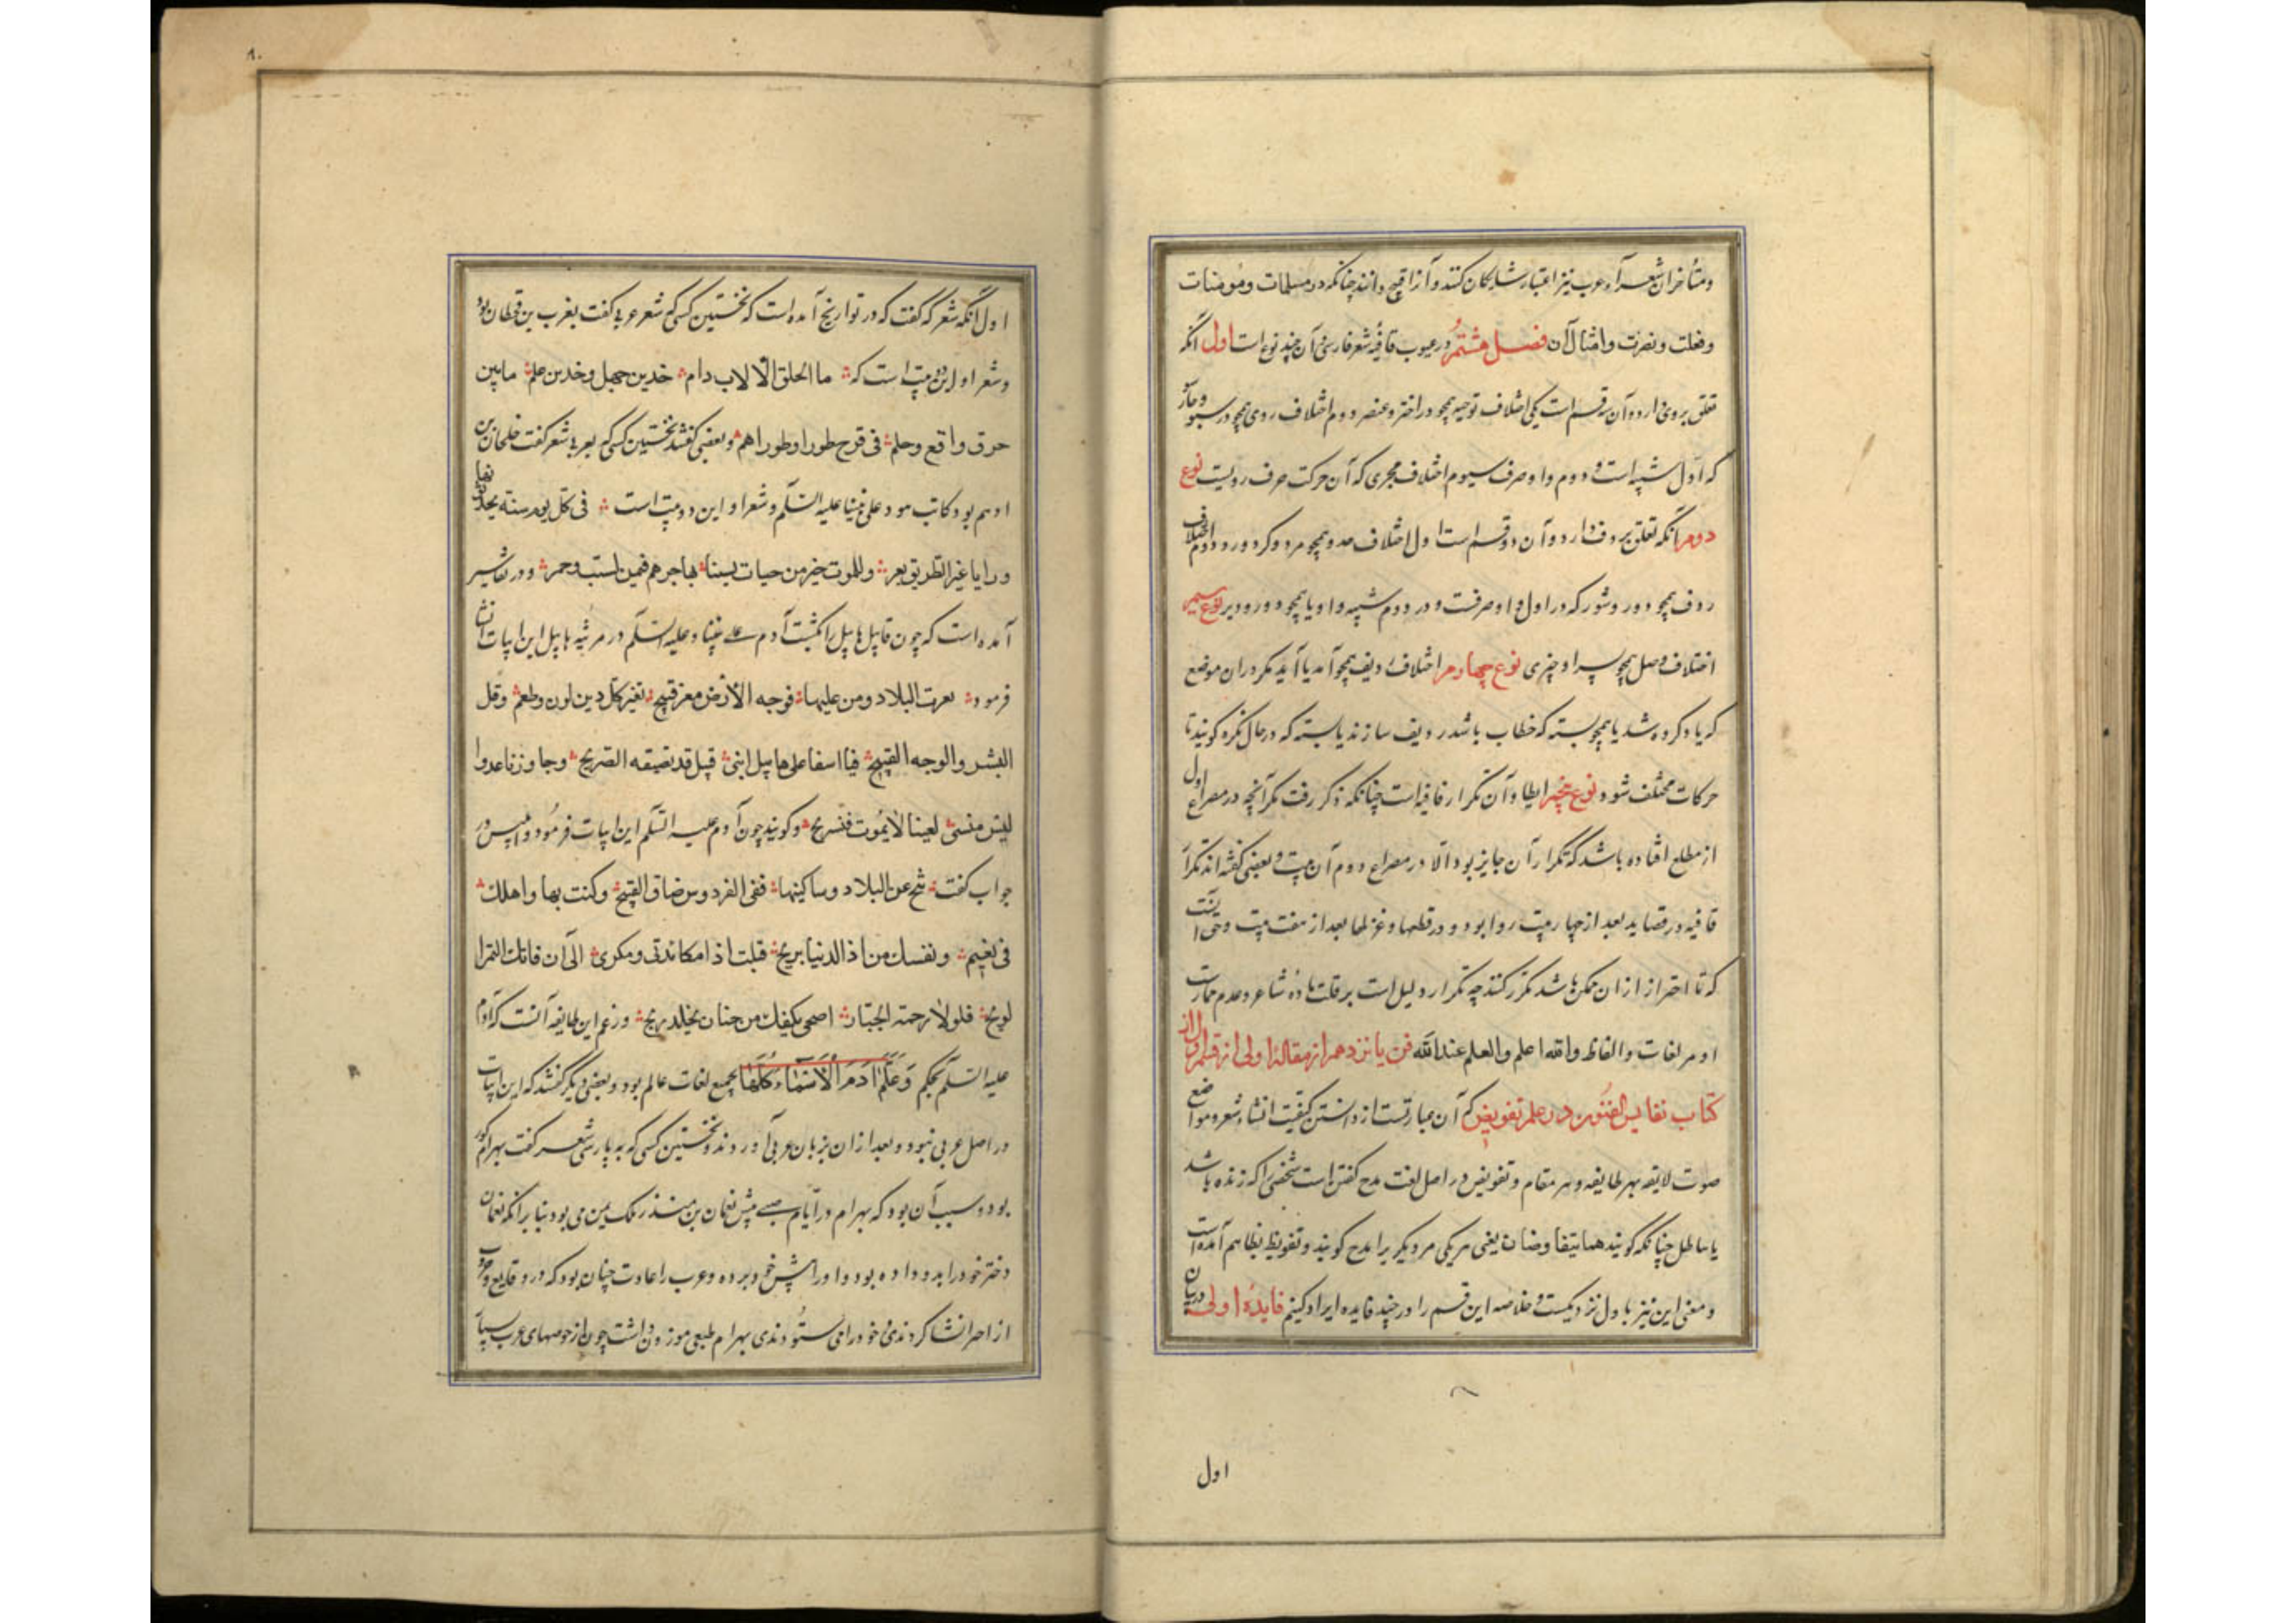 ومتأخران شعرآء عرب نیز اعتبار شایکان کنند وآنرا قبیح دانند چنانکه در مسلمات ومومنات
وفعلت ونصرت وامثال آن فصل هشتم در عیوب قافیهٔ شعر فارسی وآن چند نوع است اول آنکه
تعلق بروی دارد وآن سه قسم است یکی اختلاف توجیه همچو در اختر وعنصر دوم اختلاف روی همچو در
که اول شبیه است و دوم واو صرف سیوم اختلاف مجری که آن حرکت حرف رویست نوع
دوم آنکه تعلق بردف دارد وآن دو قسم است اول اختلاف حدو همچو مرد وکرد ودرد دوم اختلاف
ردف همچو دور وشور که در اول واو صرفست و در دوم شبیه واو یا همچو دور ودیر نوع سیم
اختلاف وصل همچو پسر او چیزی نوع چهارم اختلاف ردیف همچو آمد یا آید مکر در آن موضع
که یاد کرده شد یا همچو بسته که خطاب باشد ردیف سازند یا بسته که در حال نکره کویند تا
حرکات مختلف شود نوع پنجم ایطا وآن تکرار قافیه است چنانکه ذکر رفت مکر آنچه در مصراع اول
از مطلع افتاده باشد که تکرار آن جایز بود الا در مصراع دوم آن بیت وبعضی کفته اند تکرار
قافیه در قصاید بعد از چهار بیت روا بود ودر قطعها وغزلها بعد از هفت بیت وحق آنست
که تا احتراز ازان ممکن باشد مکرر نکنند چه تکرار دلیل است بر قلت مادهٔ شاعر وعدم ممارست
او در لغات والفاظ والله اعلم والعلم عندالله فن یانزدهم از مقالهٔ اولی از قسم اول از
کتاب نفایس الفنون در علم تقویض که آن عبارتست از دانستن کیفیت انشاء شعر ومواضع
صوت لایقه بهر طایفه وهر مقام وتقویض در اصل لغت مدح کفتن است شخصی را که زنده باشد
یا باطل چنانکه کویند هما یتقاوضان یعنی هر یکی مر دیکر یرا مدح کویند وتقویظ بظا هم آمده است
ومعنی این نیز باول نزدیکست وخلاصه این قسم را در چند فایده ایراد کنیم فایدهٔ اولی در بیان
اول
اول آنکه شعر که کفت که در تواریخ آمده است که نخستین کسی که شعر عربی کفت یعرب بن قحطان بود
وشعر او این دو بیت است که ما الخلق الا لاب دام خدین جهل وخدین علم مابین
حرق واقع وحلم فی قرح طورا وطورا هم وبعضی کفتند نخستین کسی که بعربی شعر کفت خلجان بن
ادهم بود وکاتب هود علی نبینا علیه السلم وشعر او این دو بیت است فی کل یوم سنته یحد
ورایا غیر الطریق یعبر وللموت خیر من حیات یسبنا بها جرهم فیمن لسب وحمر ودر تفاسیر
آمده است که چون قابیل هابیل را بکشت آدم علی نبینا وعلیه السلم در مرثیه هابیل این ابیات انشا
فرمود تغیرت البلاد ومن علیها فوجه الارض مغبر قبیح تغیر کل ذین لون وطعم وقل
البشر والوجه القبیح فیا اسفا علی هابیل ابنی قتیل قد تضمنه الضریح وجاورنا عدوا
لیس منسی لعینا لا یموت فنستریح وکویند چون آدم علیه السلم این ابیات فرمود وابلیس در
جواب کفت تنح عن البلاد وساکینها ففی الفردوس ضاق القبیح وکنت بها واهلک
فی نعیم ونفسک من اذ الدنیا بریح قبلت اذ امکایدتی ومکری الی ان فاتک الثمرا
لویح فلولا رحمة الجبار اضحی بکفک من جنان یخلد ریح وزعم این طایفه آنست که آدم
علیه السلم بحکم وَعَلَّمَ اٰدَمَ الْاَسْمَاءَ کُلَّهَا بجمیع لغات عالم بود وبعضی دیکر کفتند که این ابیات
در اصل عربی نبود وبعد از ان بزبان عربی آوردند ونخستین کسی که به پارسی شعر کفت بهرام کور
بود وسبب آن بود که بهرام در ایام صبی پیش نعمان بن منذر ملک یمن می بود بنا بر آنکه نعمان
دختر خود را بدو داده بود واو را پیش خود برده وعرب را عادت چنان بود که در وقایع وحروب
از احر انشا کردندی وخود را می ستودندی بهرام طبعی موزون داشت چون از خوصهای عرب بسیار